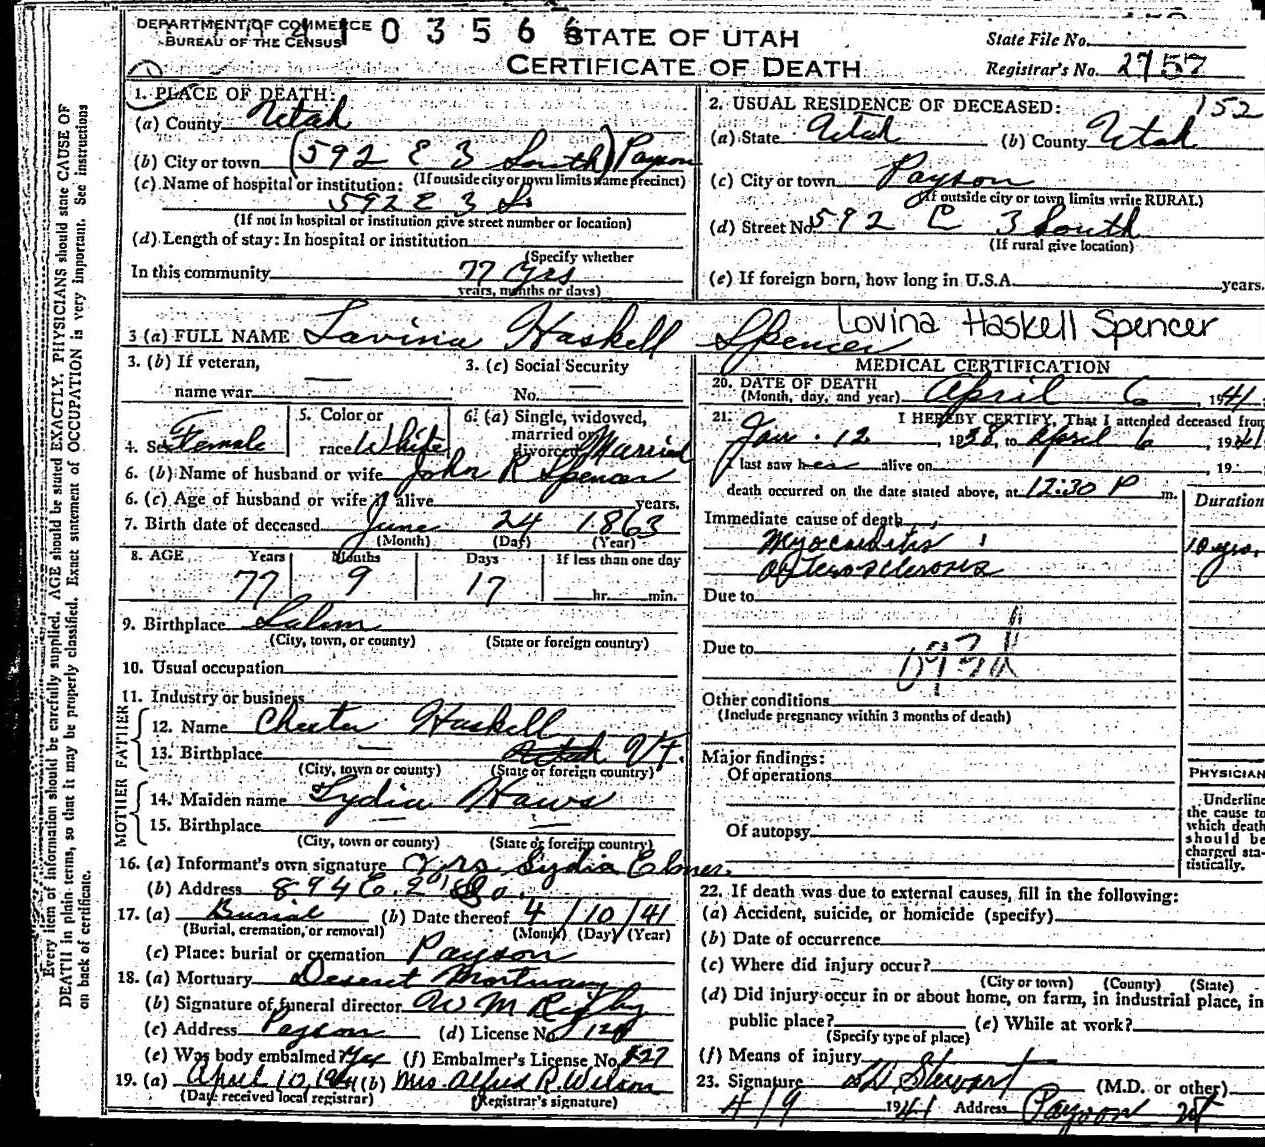 DEPARTMENT OF COMMERCE
BUREAU OF THE CENSUS
1 0 3 5 6 6
STATE OF UTAH
CERTIFICATE OF DEATH
State File No.
Registrar's No. 2757
152
1. PLACE OF DEATH:
(a) County Utah
(b) City or town (592 E 3 South) Payson
(If outside city or town limits name precinct)
(c) Name of hospital or institution:
592 E 3 So
(If not in hospital or institution give street number or location)
(d) Length of stay: In hospital or institution
(Specify whether
In this community 77 yrs
years, months or days)
2. USUAL RESIDENCE OF DECEASED:
(a) State Utah (b) County Utah
(c) City or town Payson
(If outside city or town limits write RURAL)
(d) Street No. 592 E 3 South
(If rural give location)
(e) If foreign born, how long in U.S.A. years.
3 (a) FULL NAME Lavina Haskell Spencer
Lovina Haskell Spencer
3. (b) If veteran,
name war —
3. (c) Social Security
No. —
4. Sex Female
5. Color or
race White
6. (a) Single, widowed,
married or
divorced Married
6. (b) Name of husband or wife John R Spencer
6. (c) Age of husband or wife if alive years.
7. Birth date of deceased June 24 1863
(Month) (Day) (Year)
8. AGE Years Months Days If less than one day
77 9 17 hr. min.
9. Birthplace Salem
(City, town, or county) (State or foreign country)
10. Usual occupation
11. Industry or business
FATHER
12. Name Chester Haskell
13. Birthplace — Utah VT.
(City, town or county) (State or foreign country)
MOTHER
14. Maiden name Lydia Haws
15. Birthplace — —
(City, town or county) (State or foreign country)
16. (a) Informant's own signature Mrs Lydia Elmer.
(b) Address 894 E. 2nd So.
17. (a) Burial (b) Date thereof 4/10/41
(Burial, cremation, or removal) (Month) (Day) (Year)
(c) Place: burial or cremation Payson
18. (a) Mortuary Deseret Mortuary
(b) Signature of funeral director W M Rigby
(c) Address Payson (d) License No.
(e) Was body embalmed Yes (f) Embalmer's License No. 127
19. (a) April 10, 1941 (b) Mrs. Alfred R. Wilson
(Date received local registrar) (Registrar's signature)
MEDICAL CERTIFICATION
20. DATE OF DEATH
(Month, day, and year) April 6, 1941
21. I HEREBY CERTIFY, That I attended deceased from
Jan. 12, 1938, to April 6 1941
I last saw her alive on , 19
death occurred on the date stated above, at 12:30 P m.
Duration
Immediate cause of death
Myocarditis 10 yrs.
arteriosclerosis
Due to
Due to
Other conditions
(Include pregnancy within 3 months of death)
Major findings:
Of operations
Of autopsy
PHYSICIAN
Underline
the cause to
which death
should be
charged sta-
tistically.
22. If death was due to external causes, fill in the following:
(a) Accident, suicide, or homicide (specify)
(b) Date of occurrence
(c) Where did injury occur?
(City or town) (County) (State)
(d) Did injury occur in or about home, on farm, in industrial place, in
public place? (e) While at work?
(Specify type of place)
(f) Means of injury
23. Signature Stewart (M.D. or other)
4/9 1941 Address Payson Ut
Every item of information should be carefully supplied. AGE should be stated EXACTLY. PHYSICIANS should state CAUSE OF
DEATH in plain terms, so that it may be properly classified. Exact statement of OCCUPATION is very important. See instructions
on back of certificate.